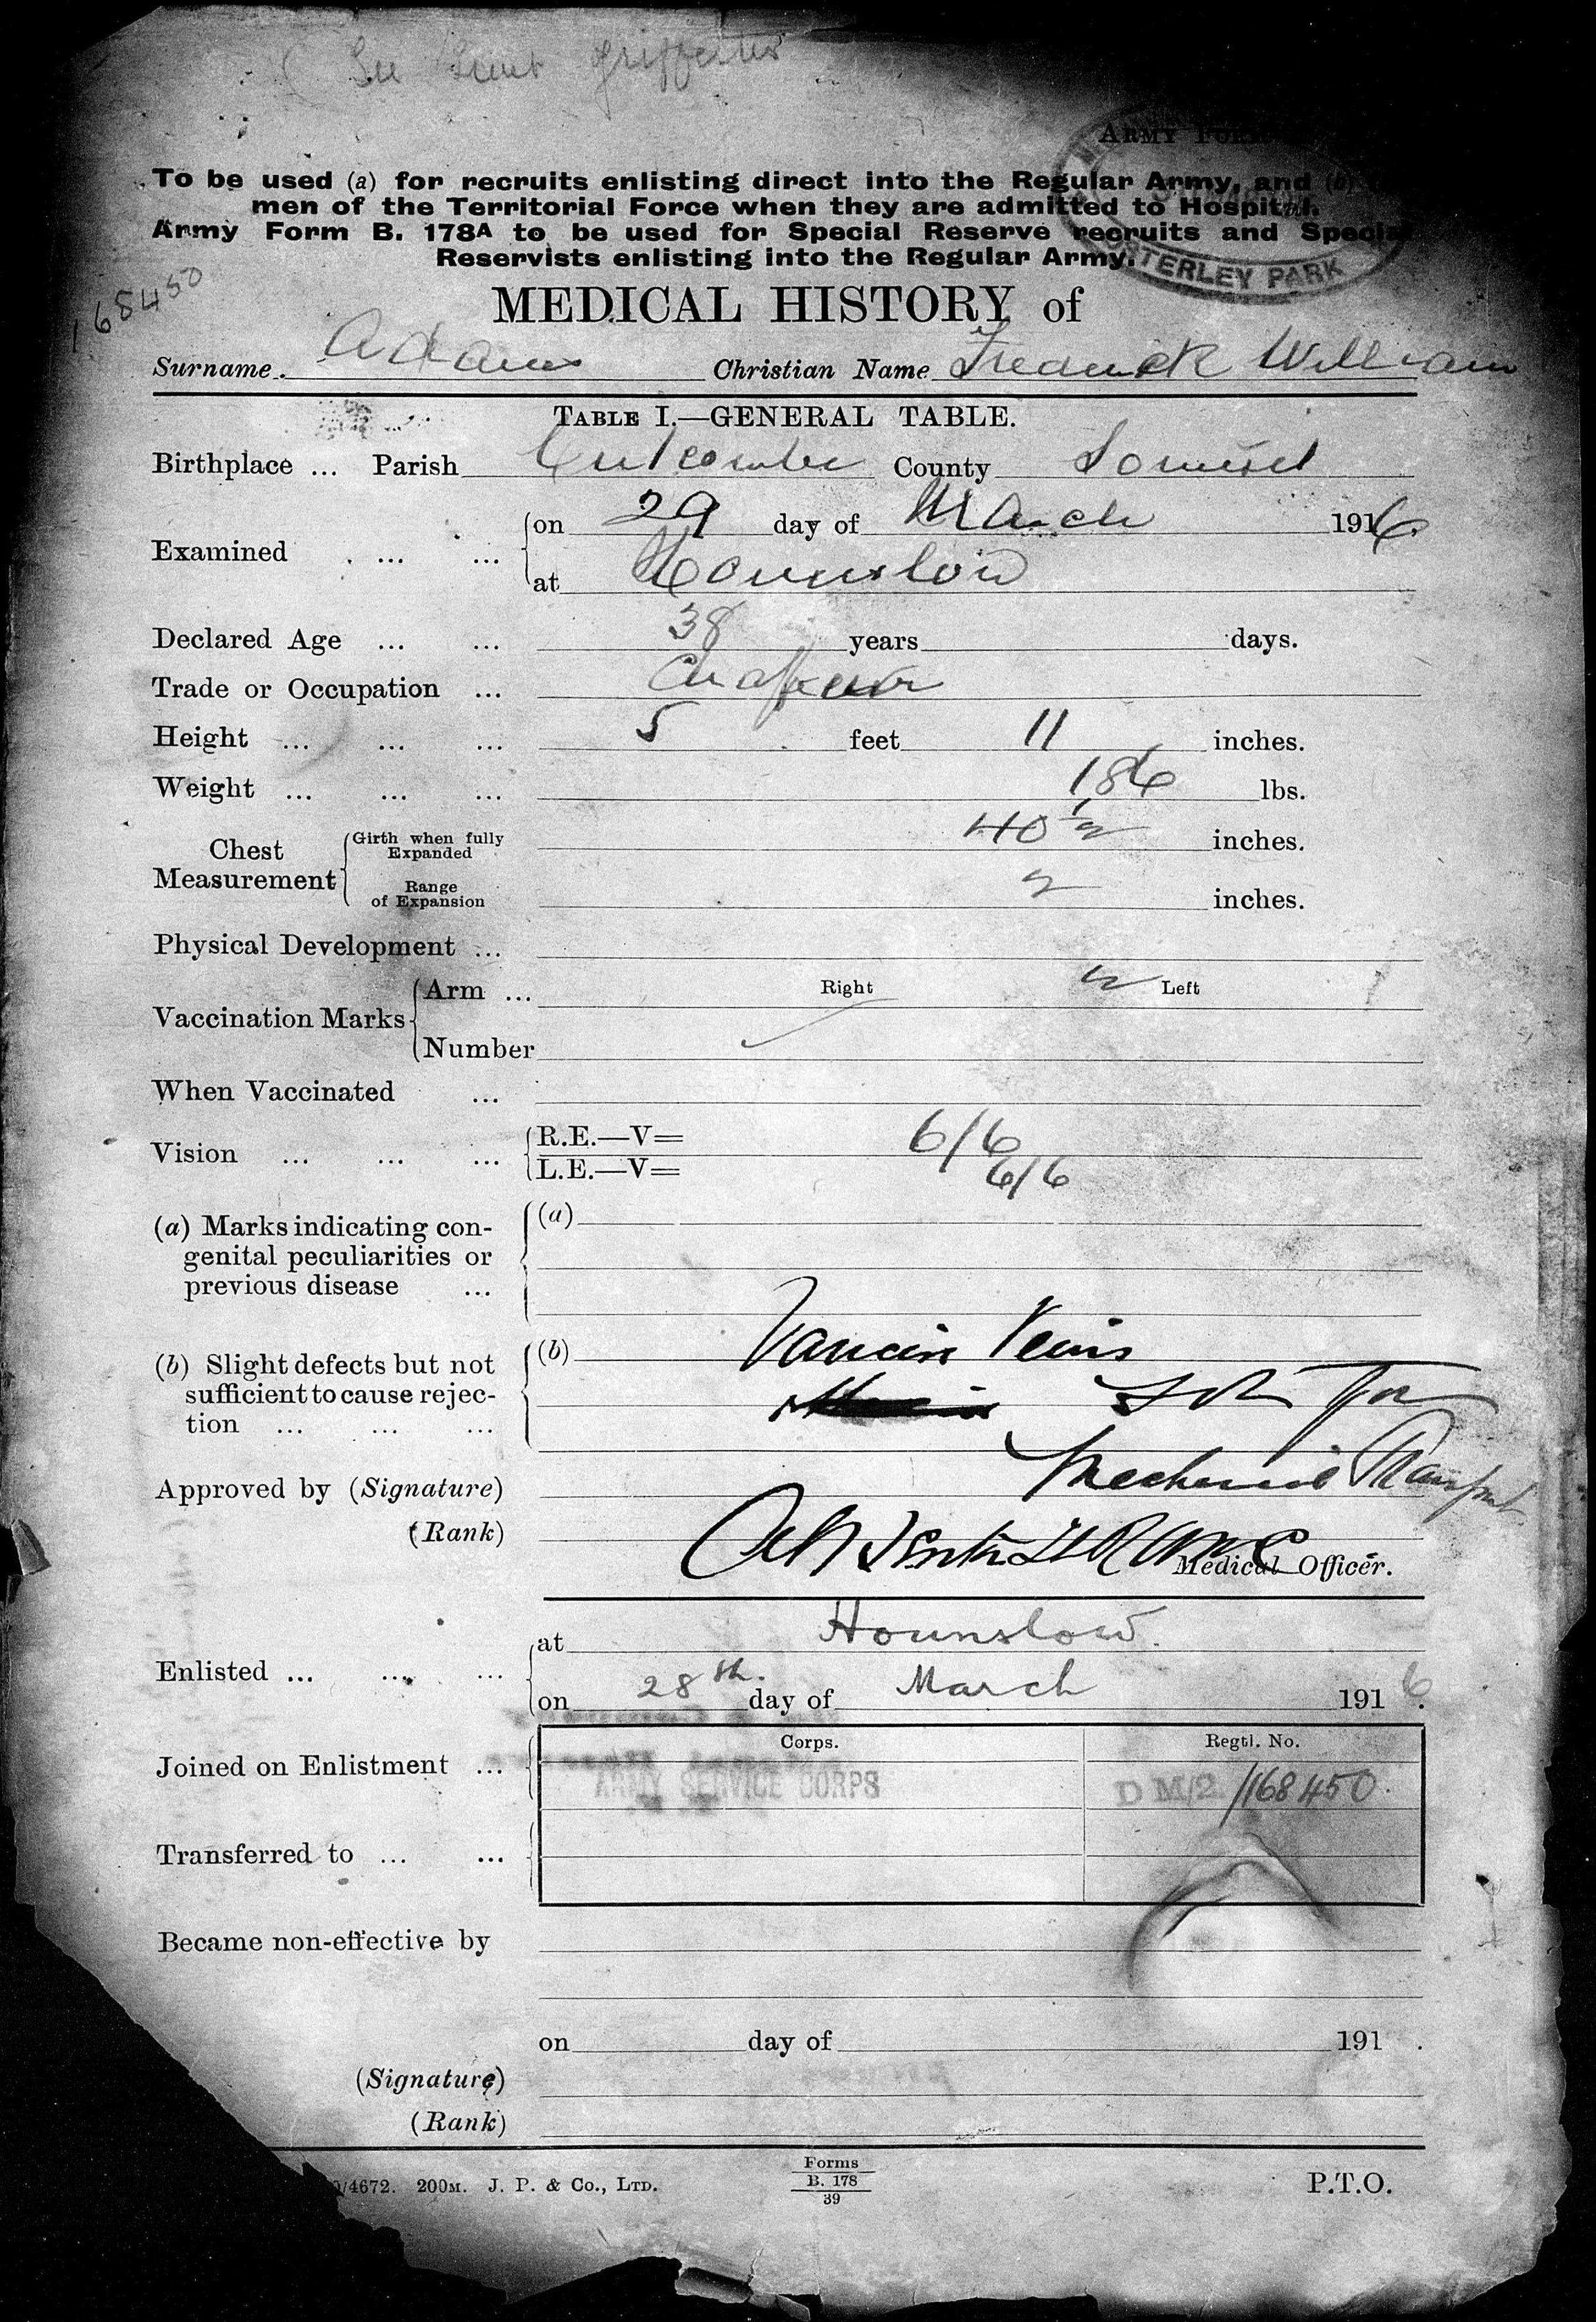 168450
ARMY FORM
To be used (a) for recruits enlisting direct into the Regular Army, and (b)
men of the Territorial Force when they are admitted to Hospital.
Army Form B. 178A to be used for Special Reserve recruits and Special
Reservists enlisting into the Regular Army.
OSTERLEY PARK
MEDICAL HISTORY of
Surname. Adams Christian Name Frederick William
TABLE I.—GENERAL TABLE.
Birthplace ... Parish Cutcombe County Somerset
Examined ... ... on 29 day of March 1916
at Hounslow
Declared Age ... ... 38 years days.
Trade or Occupation ... Chaffeur
Height ... ... ... 5 feet 11 inches.
Weight ... ... ... 186 lbs.
Chest Measurement Girth when fully Expanded 40 1/2 inches.
Range of Expansion 2 inches.
Physical Development ...
Vaccination Marks Arm ... Right 2 Left
Number
When Vaccinated ...
Vision ... ... ... R.E.—V= 6/6
L.E.—V= 6/6
(a) Marks indicating con-
genital peculiarities or
previous disease ...
(a)
(b) Slight defects but not
sufficient to cause rejec-
tion ... ... ...
(b) Varicose Veins
Fit for
Mechanical Transport
Approved by (Signature)
(Rank) Lt RAMC
Medical Officer.
Enlisted ... ... ... at Hounslow.
on 28th. day of March 1916.
Corps. Regtl. No.
Joined on Enlistment ... ARMY SERVICE CORPS DM/2 /168450.
Transferred to ... ...
Became non-effective by
on day of 191 .
(Signature)
(Rank)
/4672. 200M. J. P. & Co., LTD. Forms B. 178 39 P.T.O.